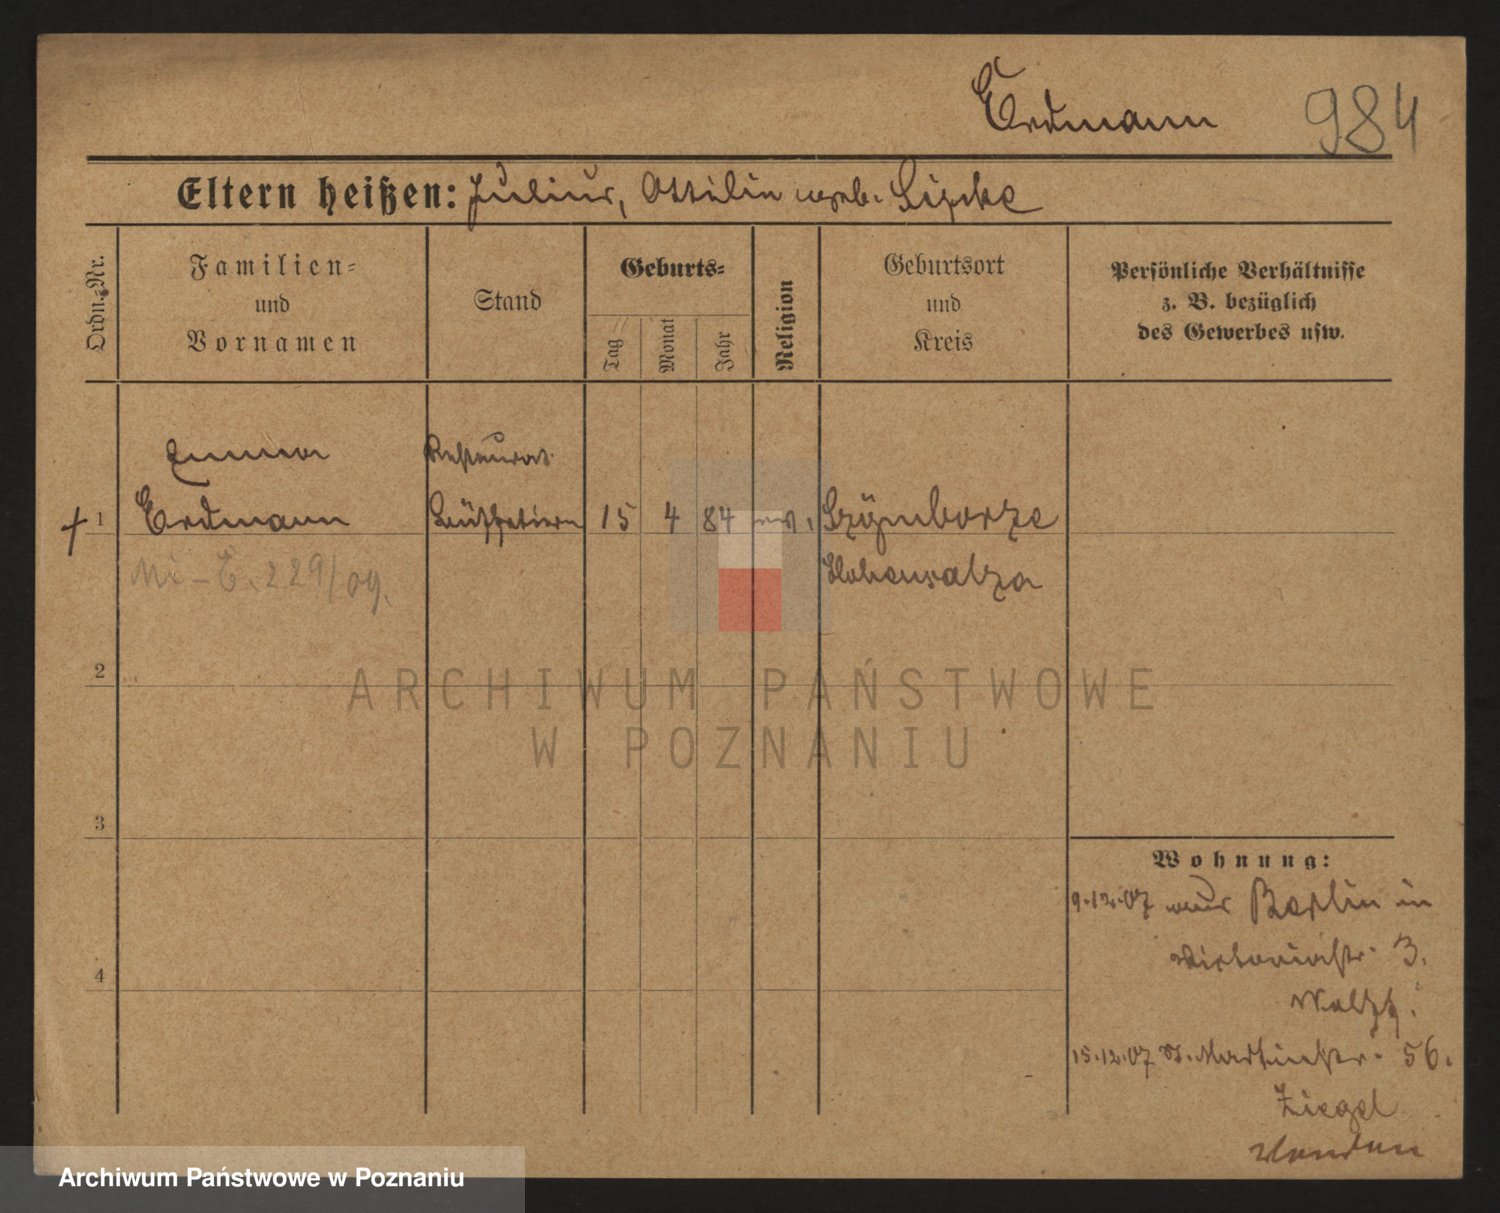 Erdmann 984
Eltern heißen: Julius, Ottilie geb. Lipke
Ordn.-Nr.
Familien-
und
Vornamen
Stand
Geburts-
Tag
Monat
Jahr
Religion
Geburtsort
und
Kreis
Persönliche Verhältnisse
z. B. bezüglich
des Gewerbes usw.
Emma Restaurat.
1 Erdmann Büffetiere 15 4 84 ev. Szymborze
Hohensalza
229/09.
2
3
4
Wohnung:
9.12.07 aus Berlin in
Viktoriastr. 3.
15.12.07 St. Martinstr. 56.
Ziegel
ARCHIWUM PAŃSTWOWE
W POZNANIU
Archiwum Państwowe w Poznaniu